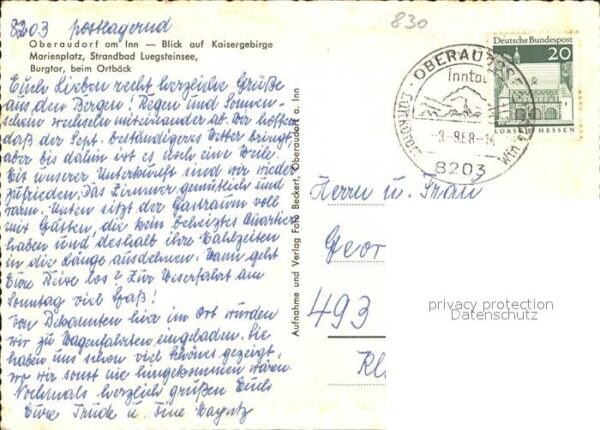 8203 postlagernd
830
Oberaudorf am Inn — Blick auf Kaisergebirge
Marienplatz, Strandbad Luegsteinsee,
Burgtor, beim Ortbäck
Euch Lieben recht herzliche Grüße
aus den Bergen! Regen und Sonnen-
schein wechseln miteinander ab. Wir hoffen
daß der Sept. beständigeres Wetter bringt,
aber bis dahin ist es noch eine Weile.
Mit unserer Unterkunft sind wir wieder
zufrieden. Das Zimmer gemütlich und
warm. Unten sitzt der Gastraum voll
mit Gästen, die kein beheiztes Quartier
haben und deshalb ihre Mahlzeiten
in die Länge ausdehnen. Wann geht
Eure Reise los? Zur Weserfahrt am
Sonntag viel Spaß!
Von Bekannten hier im Ort wurden
wir zu Wagenfahrten eingeladen. Sie
haben uns schon viel schönes gezeigt,
wo wir sonst nie hingekommen wären.
Nochmals herzlich grüßen Euch
Eure Trude u.
Aufnahme und Verlag Foto Beckert, Oberaudorf a. Inn
OBERAUDORF
Inntal
Luftkurort
8203
Deutsche Bundespost
20
LORSCH / HESSEN
Herrn u. Frau
Geor
493
privacy protection
Datenschutz